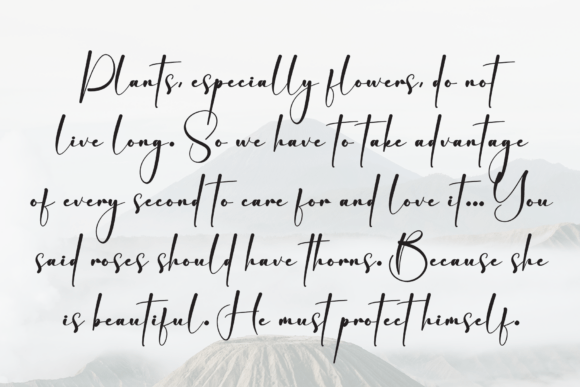 Plants, especially flowers, do not
live long. So we have to take advantage
of every second to care for and love it... You
said roses should have thorns. Because she
is beautiful. He must protect himself.